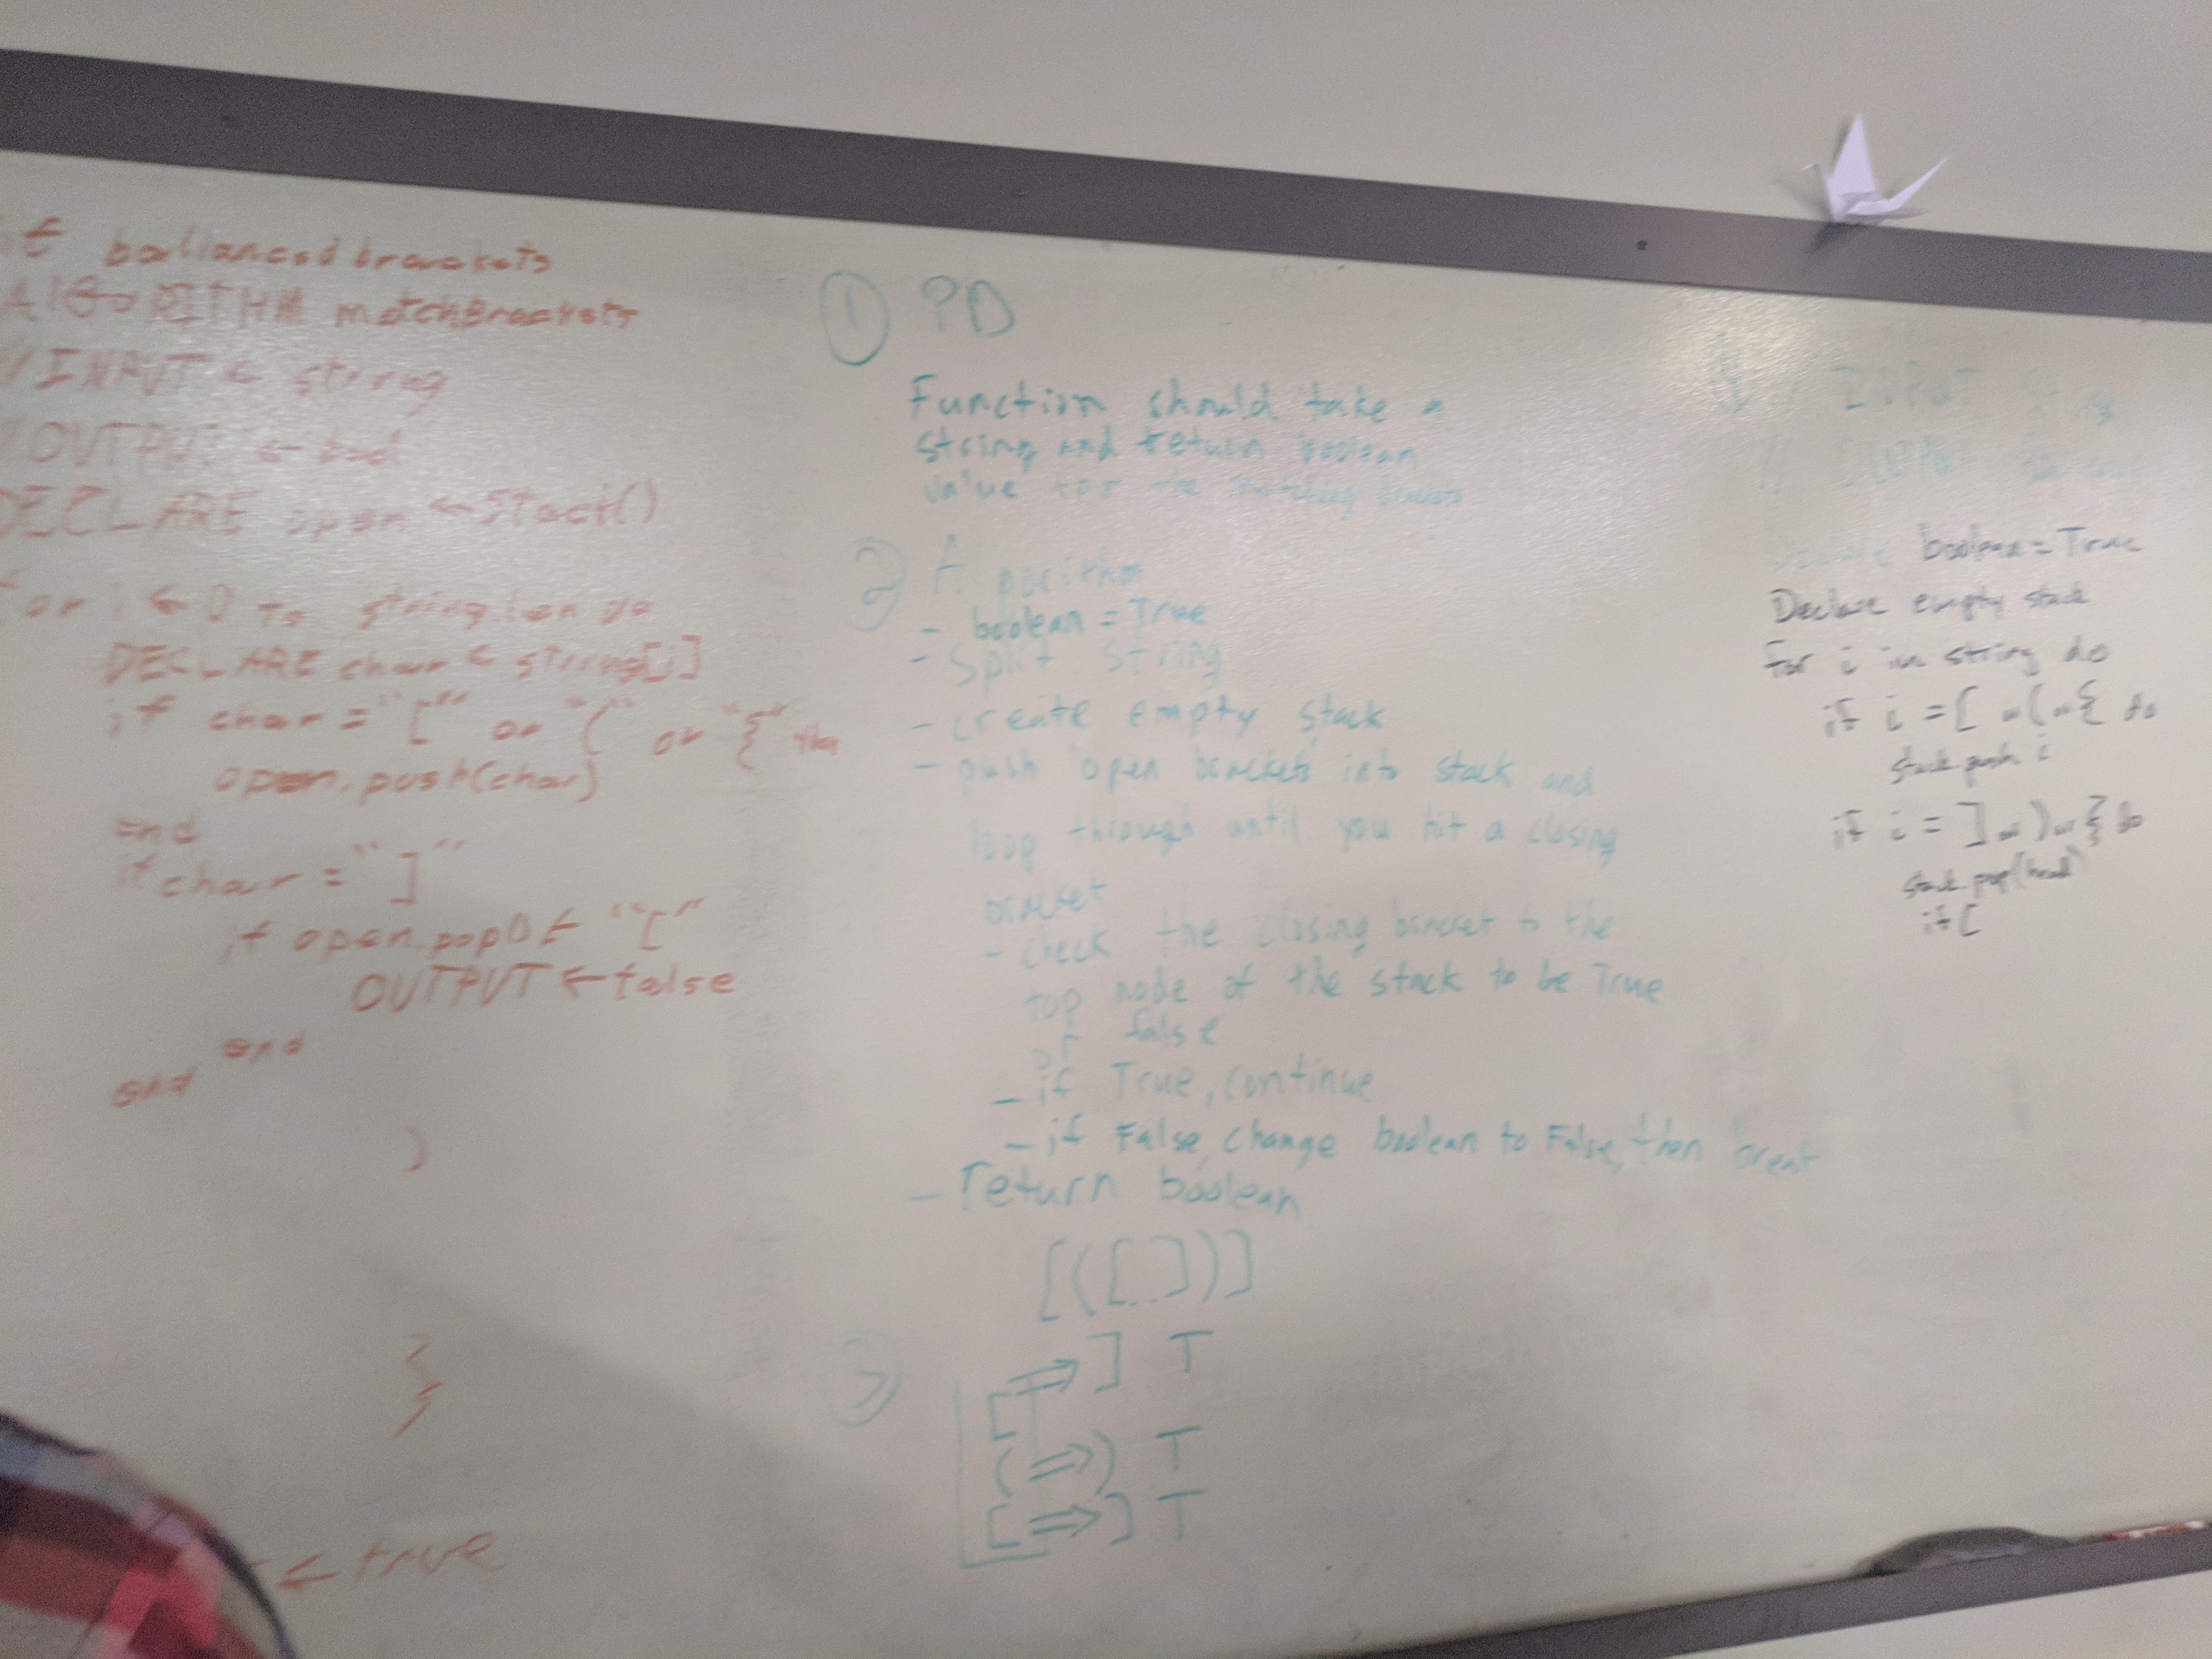 ballanced brackets
ALGORITHM matchBrackets
// INPUT ← string
// OUTPUT ← bool
DECLARE open ← Stack()
for i ← 0 to string.len do
DECLARE char ← string[i]
if char = "[" or "(" or "{" then
open.push(char)
end
if char = "]"
if open.pop() ≠ "["
OUTPUT ← false
end
end
)
}
← true
① PD
Function should take a
string and return boolean
value for the matching brackets
② Algorithm
- boolean = True
- Split string
- create empty stack
- push open brackets into stack and
loop through until you hit a closing
bracket
- check the closing bracket to the
top node of the stack to be True
or false
- if True, continue
- if False, change boolean to False, then break
- return boolean
[([])]
③
[ ⇒ ] T
( ⇒ ) T
[ ⇒ ] T
// INPUT string
// OUTPUT
Declare boolean = True
Declare empty stack
for i in string do
if i = [ or ( or { do
stack.push i
if i = ] or ) or } do
stack.pop(head)
if [